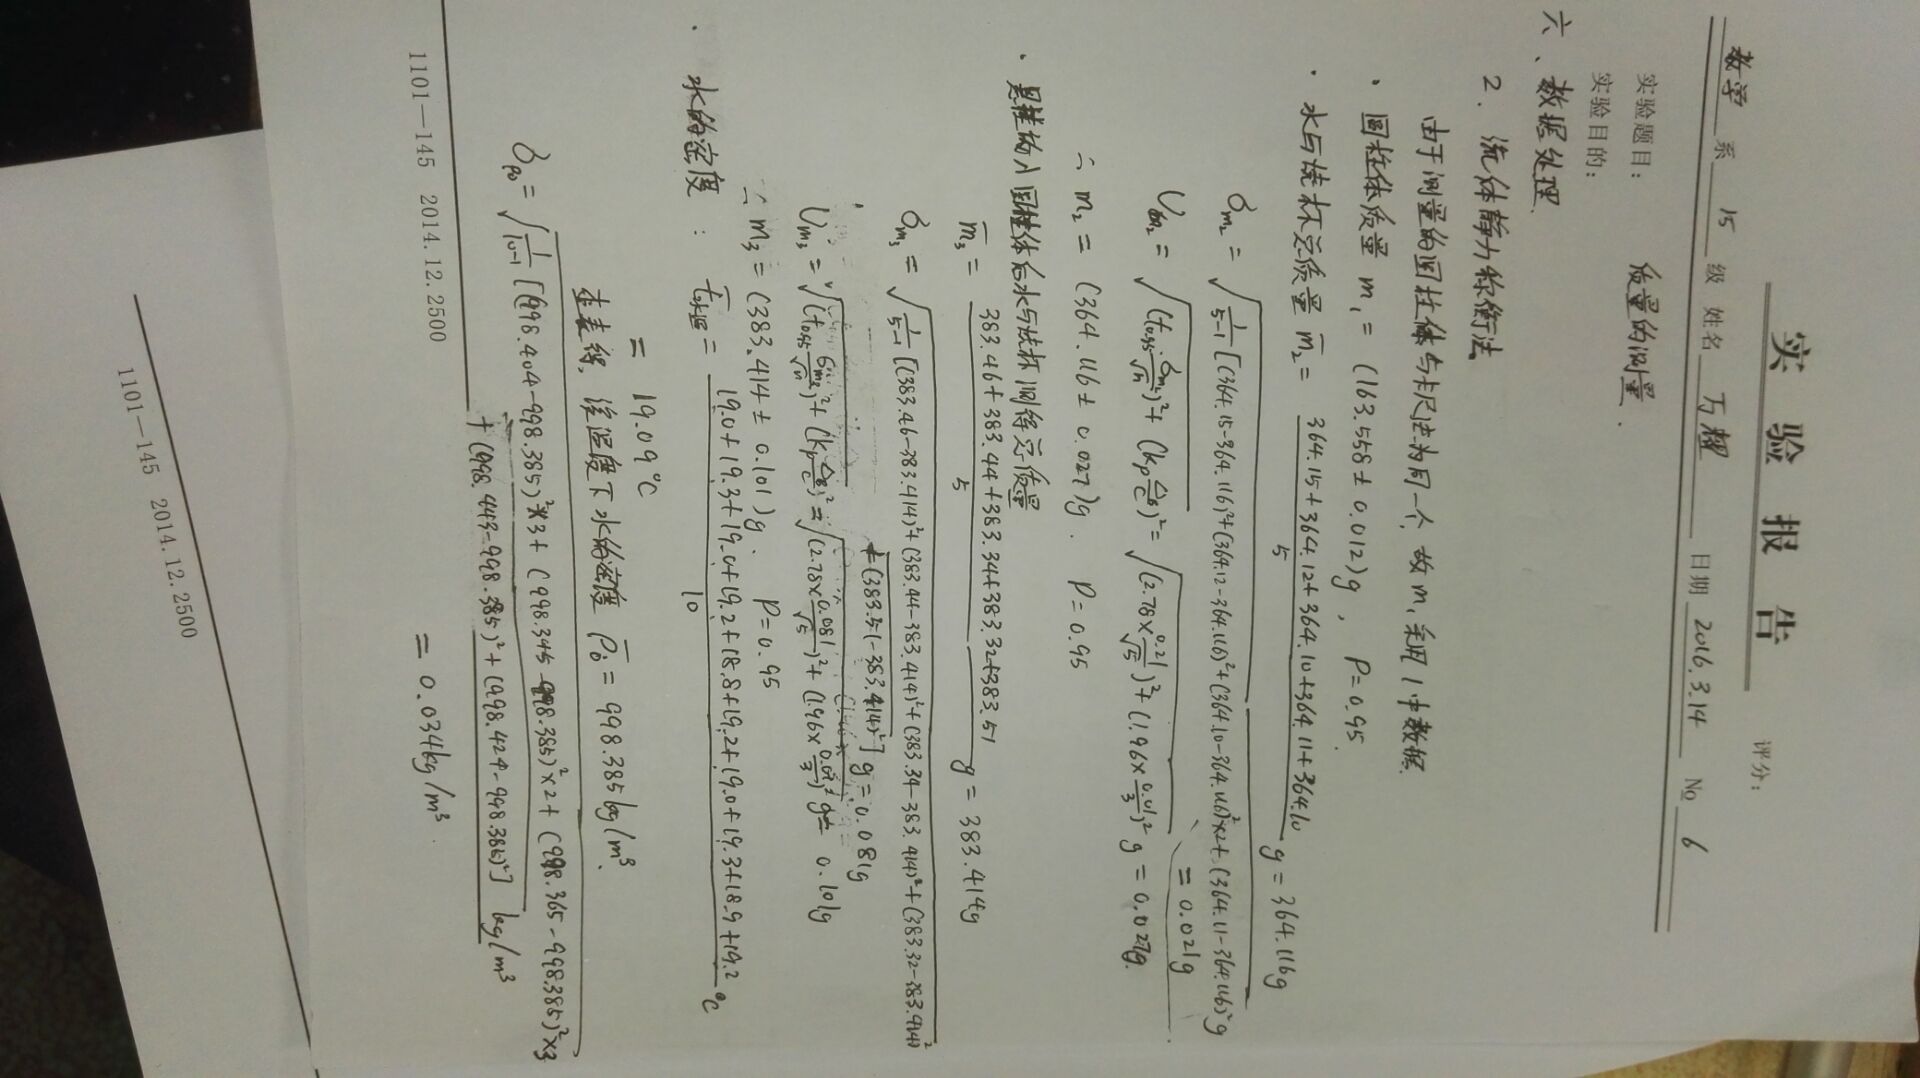 实验报告
评分:
数学 系 15 级 姓名 万耀 日期 2016.3.14 No 6
实验题目: 质量的测量.
实验目的:
六、数据处理.
2. 流体静力称衡法
由于测量的圆柱体与卡尺法为同一个, 故m₁采用1中数据.
· 圆柱体质量 m₁ = (163.558 ± 0.012)g, P=0.95.
· 水与烧杯总质量 m̄₂ = (364.15+364.12+364.10+364.11+364.10)/5 g = 364.116g
σm₂ = √(1/(5-1) [(364.15-364.116)²+(364.12-364.116)²+(364.10-364.116)²×2+(364.11-364.116)²g
= 0.021g
Um₂ = √((t₀.₉₅ σm₂/√n)²+(kp Δ仪/C)²) = √((2.78×0.21/√5)²+(1.96×0.01/3)²) g = 0.027g.
∴ m₂ = (364.116 ± 0.027)g. P=0.95
· 悬挂的入圆柱体后水与烧杯测得总质量
m̄₃ = (383.46+383.44+383.34+383.32+383.51)/5 g = 383.414g
σm₃ = √(1/(5-1) [(383.46-383.414)²+(383.44-383.414)²+(383.34-383.414)²+(383.32-383.414)²
+(383.51-383.414)²] g = 0.081g
Um₃ = √((t₀.₉₅ σm₃/√n)²+(kp Δ仪/C)²) = √((2.78×0.081/√5)²+(1.96×0.01/3)²) g = 0.101g
∴ m₃ = (383.414 ± 0.101)g. P=0.95
· 水的密度: t̄水温 = (19.0+19.3+19.0+19.2+18.8+19.2+19.0+19.3+18.9+19.2)/10 °C
= 19.09°C
查表得, 该温度下水的密度 ρ̄₀ = 998.385kg/m³.
σρ₀ = √(1/(10-1) [(998.404-998.385)²×3+(998.345-998.385)²×2+(998.365-998.385)²×3
+(998.443-998.385)²+(998.424-998.386)²] kg/m³
= 0.034kg/m³
1101—145 2014.12.2500
1101—145 2014.12.2500